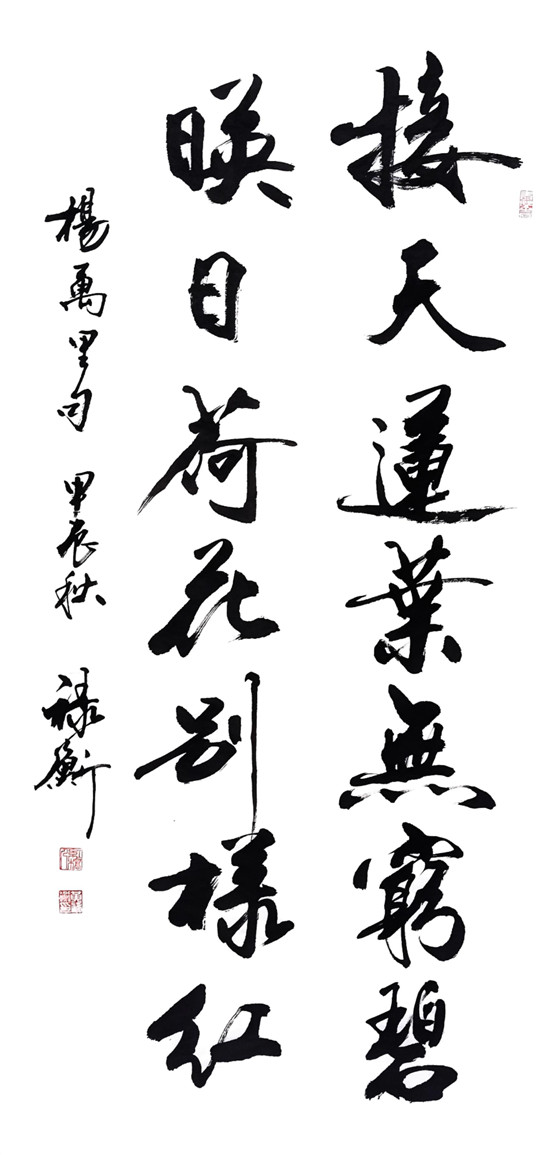 接天蓮葉無窮碧
暎日荷花别樣红
楊萬里句 甲辰秋 祿衡